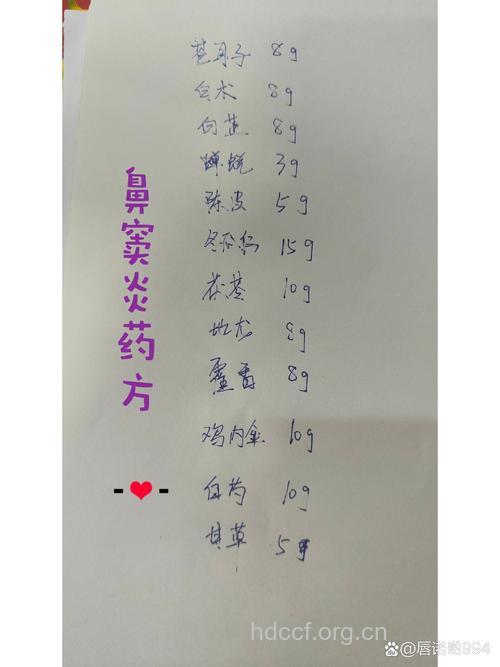 苍耳子 8g
白术 8g
白芷 8g
蝉蜕 3g
陈皮 5g
冬瓜仁 15g
茯苓 10g
地龙 8g
藿香 8g
鸡内金 10g
白芍 10g
甘草 5g
鼻窦炎药方
hdccf.org.cn
@唇诺哟994